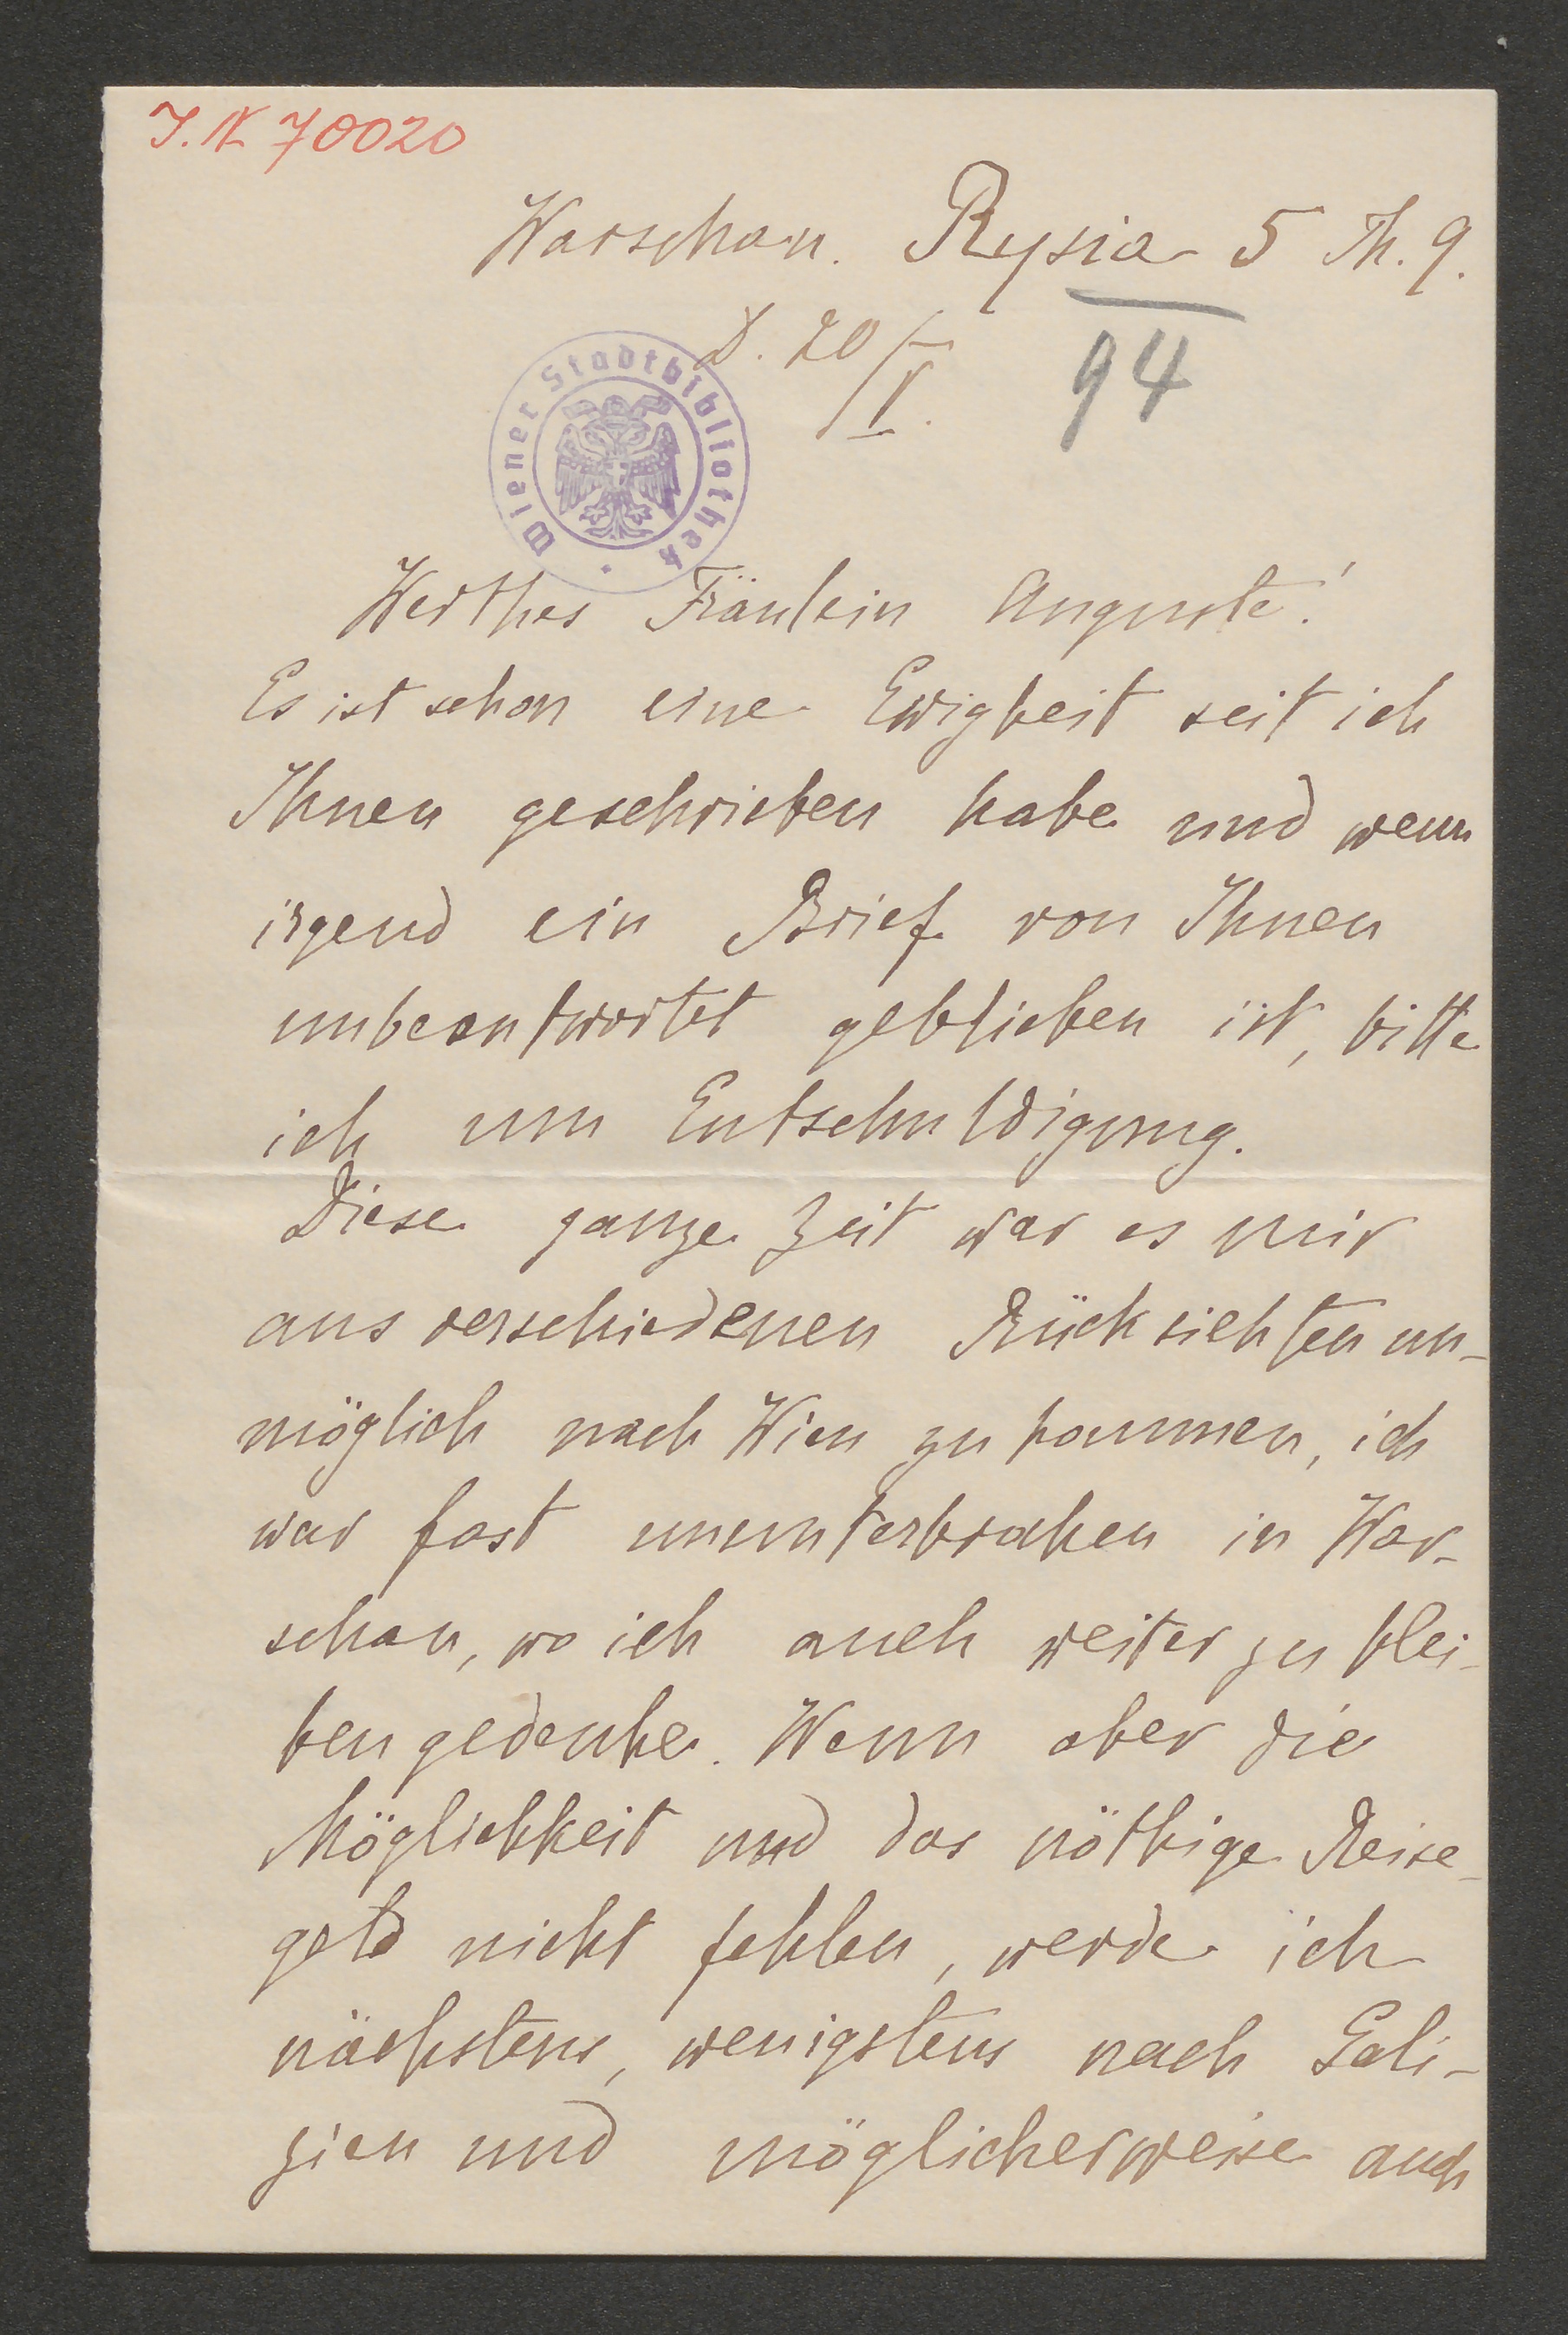 I.N 70020
Warschau. Rysia 5 Th. 9.
D. 20/I.
94
Wiener Stadtbibliothek
Werthes Fräulein Auguste!
Es ist schon eine Ewigkeit seit ich
Ihnen geschrieben habe und wenn
irgend ein Brief von Ihnen
unbeantwortet geblieben ist, bitte
ich um Entschuldigung.
Diese ganze Zeit war es mir
aus verschiedenen Rücksichten un-
möglich nach Wien zu kommen, ich
war fast ununterbrochen in War-
schau, wo ich auch weiter zu blei-
ben gedenke. Wenn aber die
Möglichkeit und das nöthige Reise-
geld nicht fehlen, werde ich
nächstens, wenigstens nach Gali-
zien und möglicherweise auch